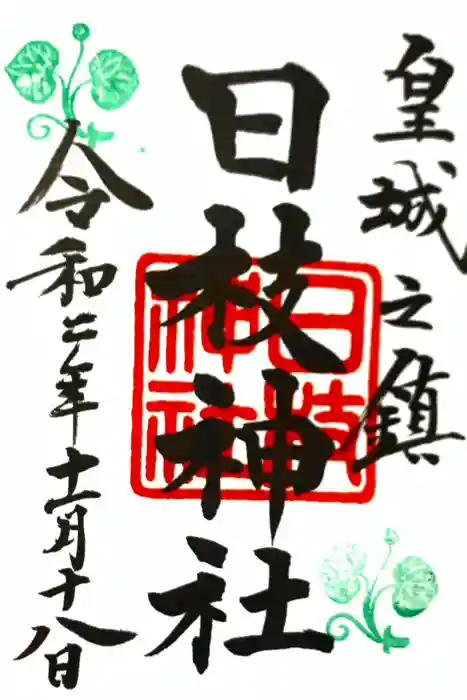 皇城之鎮
日枝神社
令和二年十一月十八日
日枝神社